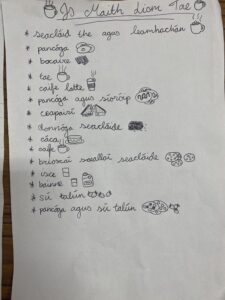 Is Maith Liom Tae
* seacláid the agus leamhachán
* pancóga
* bocaire
* tae
* caife latte
* pancóga agus síoróip
* ceapairí
* donnóga seacláide
* cáca
* caife
* brioscaí seacláide
* uisce
* bainne
* sú talún
* pancóga agus sú talún